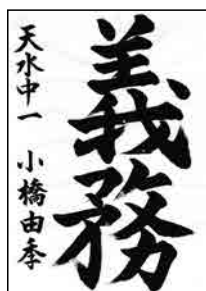 義務
天水中一 小橋由季